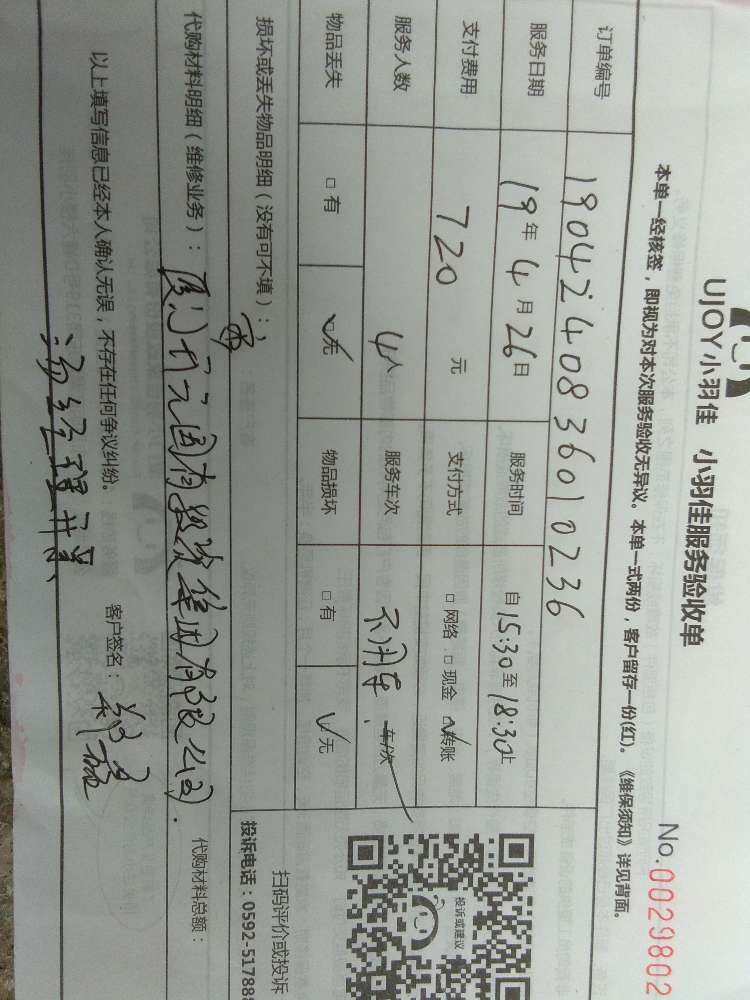 UJOY小羽佳 小羽佳服务验收单
No.0029802
本单一经核签，即视为对本次服务验收无异议。本单一式两份，客户留存一份(红)。《维保须知》详见背面。
订单编号 190424083601 0236
服务日期 19年4月26日 服务时间 自15:30至18:30止
支付费用 720 元 支付方式 □网络 □现金 ☑转账
服务人数 4人 服务车次 不用车. 车/次
物品丢失 □有 ☑无 物品损坏 □有 ☑无
投诉或建议
扫码评价或投诉
投诉电话：0592-517888
损坏或丢失物品明细（没有可不填）：
代购材料明细（维修业务）： 国有投资集团有限公司. 代购材料总额：
以上填写信息已经本人确认无误，不存在任何争议纠纷。 客户签名：
汤经理